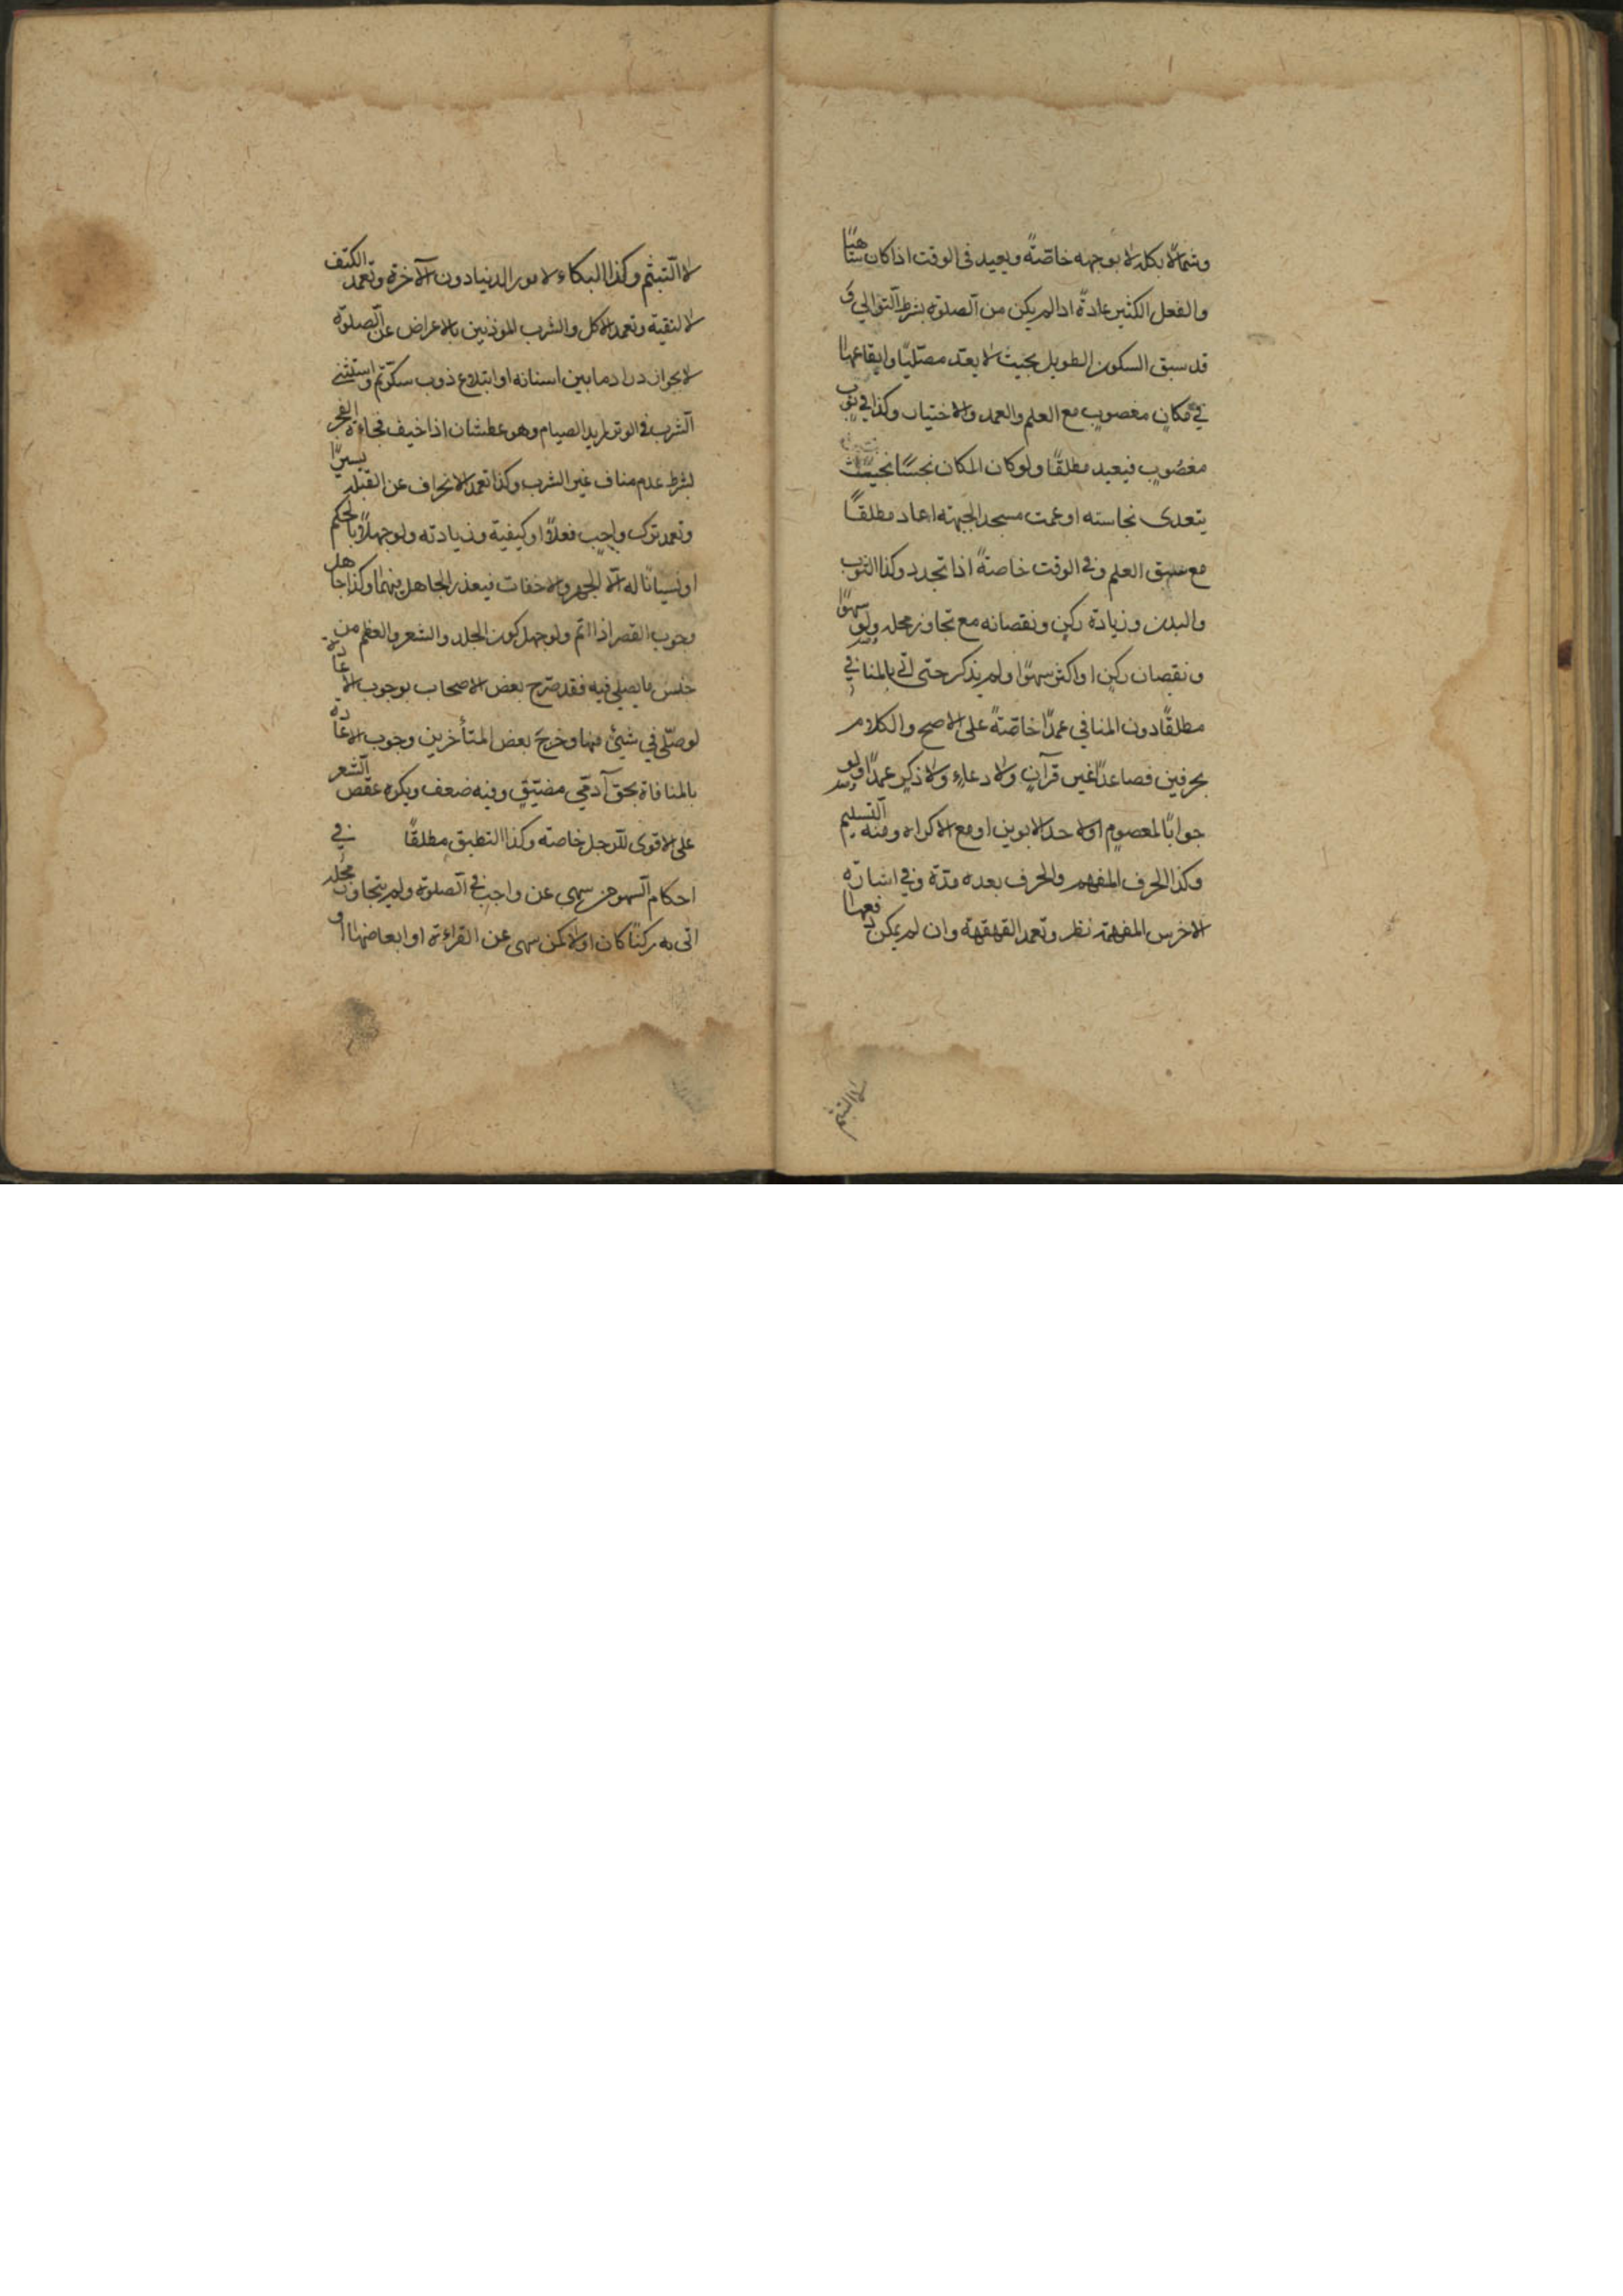 وشمالا بكله لا بوجهه خاصّةً ويعيد فى الوقت اذا كان ساهيًا
والفعل الكثير عادةً اذا لم يكن من الصلوة بشرط التوالي و
قد سبق السكون الطويل بحيث لا يعدّ مصلّيًا وايقاعها
في مكانٍ مغصوبٍ مع العلم والعمد والاختيار وكذا في ثوبٍ
مغصُوبٍ فيعيد مطلقًا ولو كان المكان نجسًا بحيث
يتعدى نجاسته او عمت مسجد الجبهته اعاد مطلقًا
مع سبق العلم وفى الوقت خاصةً اذا تجدد وكذا الثوب
والبدن وزيادة ركنٍ ونقصانه مع تجاوز محله ولو سهوًا
ونقصان ركنٍ او اكثر سهوًا ولم يذكر حتى اتى بالمنافي
مطلقًا دون المنافي عمدًا خاصّةً على الاصح والكلام
بحرفين فصاعدًا غير قرآنٍ ولا دعاءٍ ولا ذكرٍ عمدًا ولو
جوابًا لمعصومٍ او لاحد الابوين او مع الاكراه ومنه التسليم
وكذا الحرف المفهم والحرف بعده مدّة وفي اشارة
الاخرس المفهمة نظر وتعمد القهقهة وان لم يمكن دفعها
لا التبسّم
لا التبسّم وكذا البكاء لامور الدنيا دون الآخرة وتعمد الكتف
لا لتقية وتعمد الاكل والشرب الموذنين بالاعراض عن الصلوة
لا بجواز دراد ما بين اسنانه او ابتلاع ذوب سكّرٍ واستثنى
الشرب فى الوتر لمريد الصيام وهو عطشان اذا خيف فجاءة الفجر
بشرط عدم مناف غير الشرب وكذا تعمد الانحراف عن القبلة يسيرًا
وتعمد ترك واجبٍ فعلًا او كيفية وزيادته ولو جهلًا بالحكم
او نسيانًا له الّا الجهر والاخفات فيعذر الجاهل بهما وكذا جاهل
وجوب القصر اذا اتم ولو جهل كون الجلد والشعر والعظم من
جنس ما يصلى فيه فقد صرّح بعض الاصحاب بوجوب الاعادة
لو صلّى في شيئ منها وخرج بعض المتأخرين وجوب الاعادة
بالمنافاة بحق آدمّي مضيّقٍ وفيه ضعف ويكره عقص الشعر
على الاقوى للرجل خاصته وكذا التطبيق مطلقًا في
احكام السهو من سهى عن واجبٍ في الصلوة ولم يتجاوز محله
اتى به ركنًا كان او لا كمن سهى عن القراءة او ابعاضها او